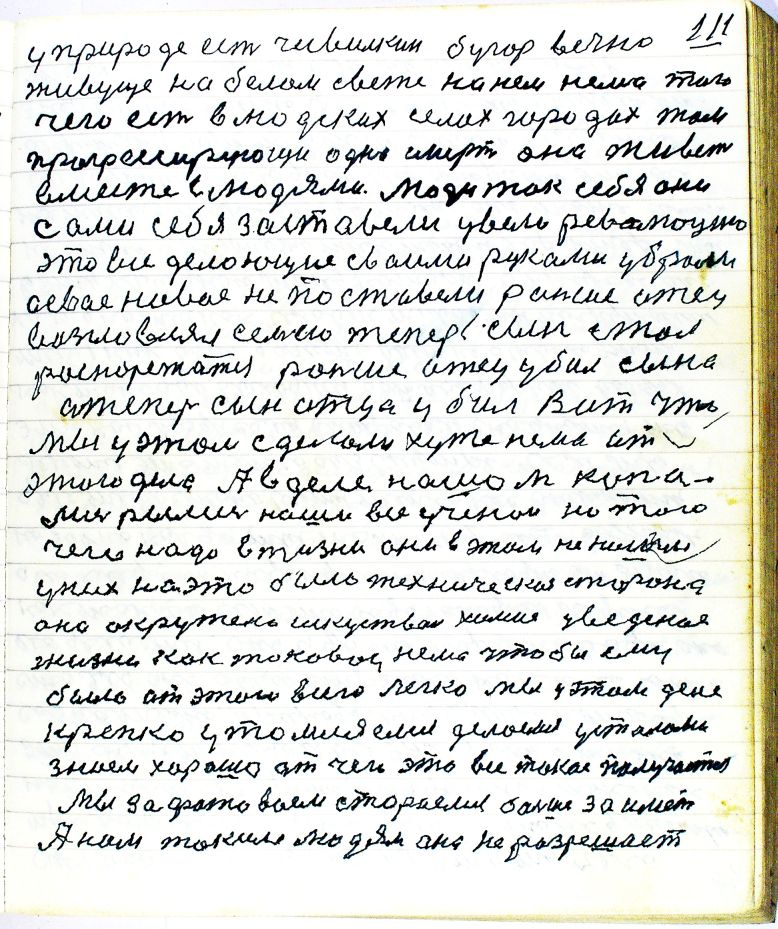 111
у природе ест чивилкин бугор вечно
живуще на белом свете на нем нема того
чего ест в людских селах городах там
прогрессирующи одна смерть она живет
вместе с людями. Люди так себя они
сами себя заставели увель револющию
это все делоющие своими руками убрали
новае не поставели ранше отец
возгловлял семю тепер сын стал
распоряжатся ранше отец убил сына
а тепер сын отца убил Вот что
мы у этом сделали хуже нема от
этого дела А в деле нашом копа-
лис рылис наши все ученои но того
чего надо в жизни они в этом не нашли
у них на это было техническая сторона
она окружена искуством химие уведеная
жизни как таковой нема чтобы ему
было от этого всего легко мы у этом деле
крепко утомляемся делаемся усталами
знаем хорошо от чего это все такое получается
мы заготоваем стораемся болше заимет
А нам таким людям она не разрешает